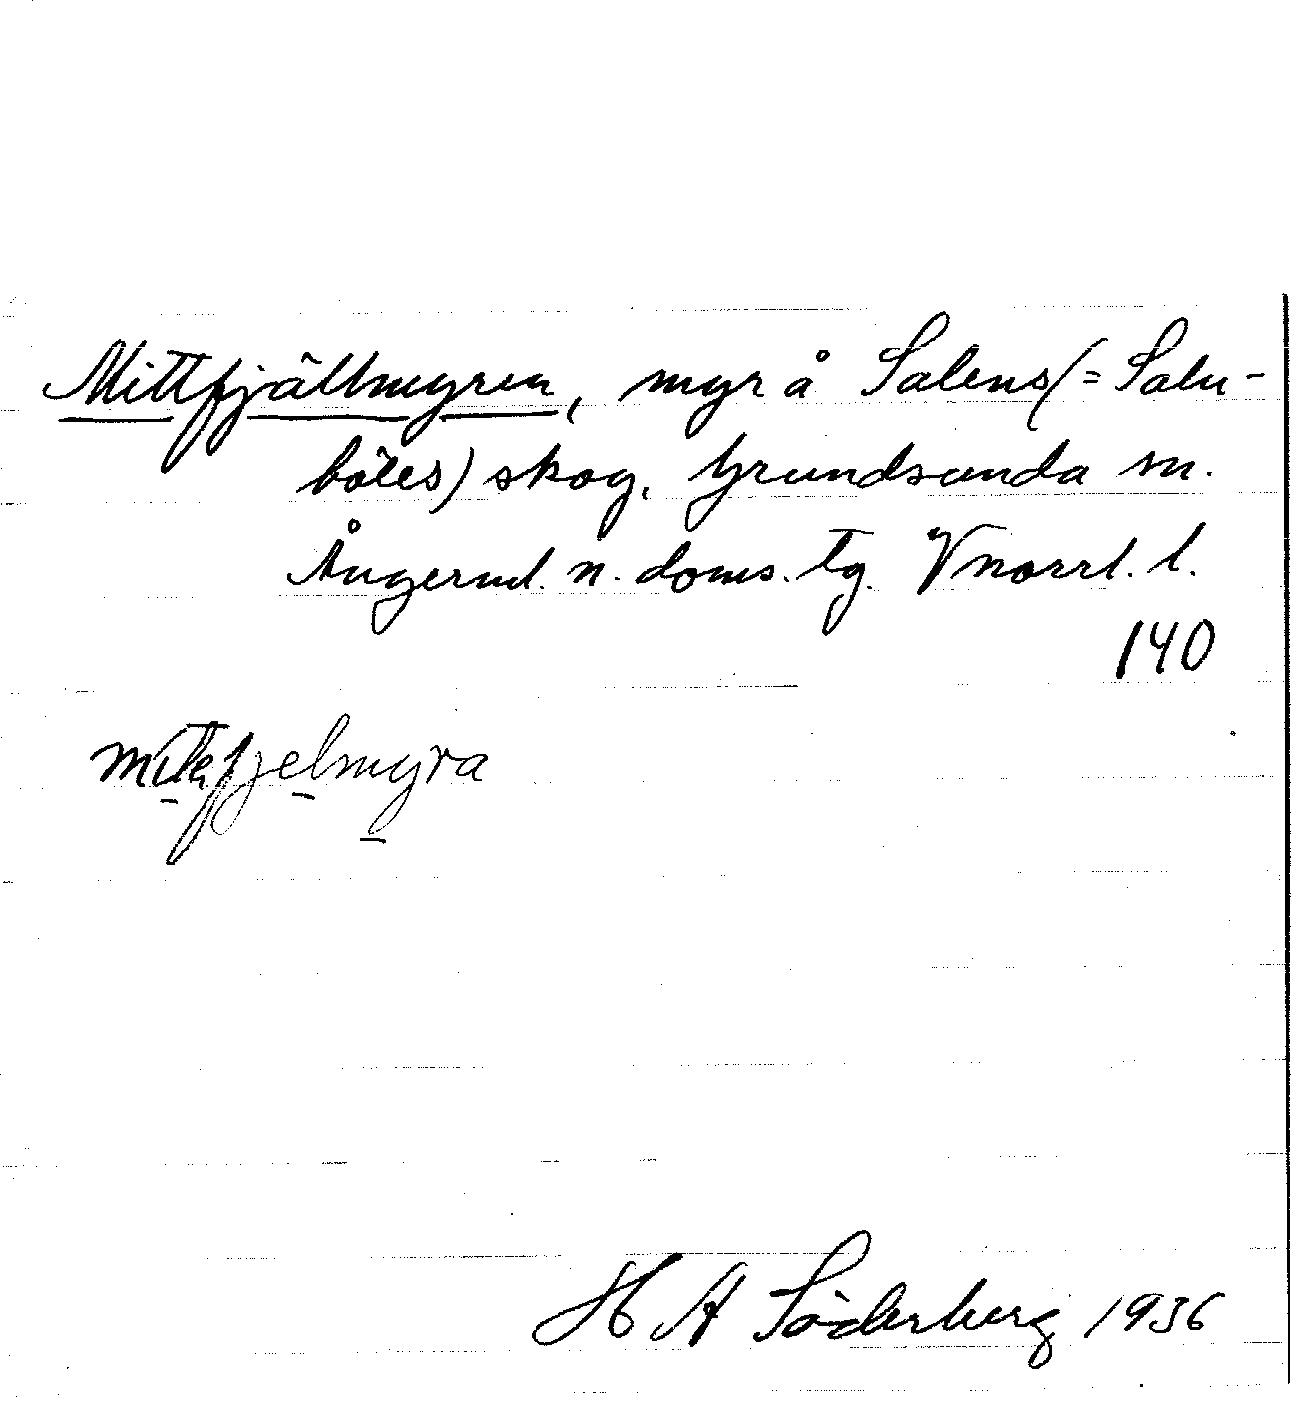 Mittfjällmyren, myr å Salens (= Salu-
böles) skog, Grundsunda sn.
Ångerml. n. doms. tg. Vnorrl. l.
140
H A Söderberg 1936